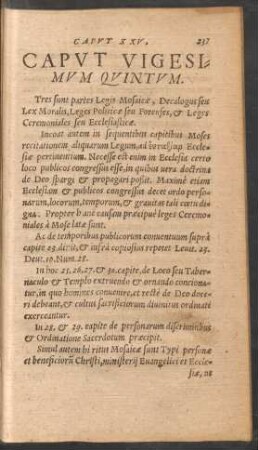 CAPVT XXV.
237
CAPVT VIGESI-
MVM QVINTVM.
Tres sunt partes Legis Mosaicæ, Decalogus seu
Lex Moralis, Leges Politicæ seu Forenses, & Leges
Ceremoniales seu Ecclesiasticæ.
Incoat autem in sequentibus capitibus Moses
recitationem aliquarum Legum, ad Ecclesi-
æ pertinentium. Necesse est enim in Ecclesia certo
loco publicos congressus esse, in quibus vera doctrina
de Deo spargi & propagari possit. Maximè etiam
Ecclesiam & publicos congressus decet ordo perso-
narum, locorum, temporum, & gravitas tali cœtu di-
gna. Propter hanc causam præcipuè leges Ceremo-
niales à Mose latæ sunt.
Ac de temporibus publicorum conventuum suprà
capite 23. dixit, & infrà copiosius repetet Levit. 23.
Deut. 16. Num. 28.
In hoc 25. 26. 27. & 30. capite, de Loco seu Taber-
naculo & Templo extruendo & ornando conciona-
tur, in quo homines convenire, et rectè de Deo doce-
ri debeant, & cultus sacrificiorum divinitus ordinati
exerceantur.
In 28. & 29. capite de personarum discriminibus
& Ordinatione Sacerdotum præcipit.
Simul autem hi ritus Mosaicæ sunt Typi personæ
et beneficiorũ Christi, ministerij Euangelici et Eccle-
siæ, ut